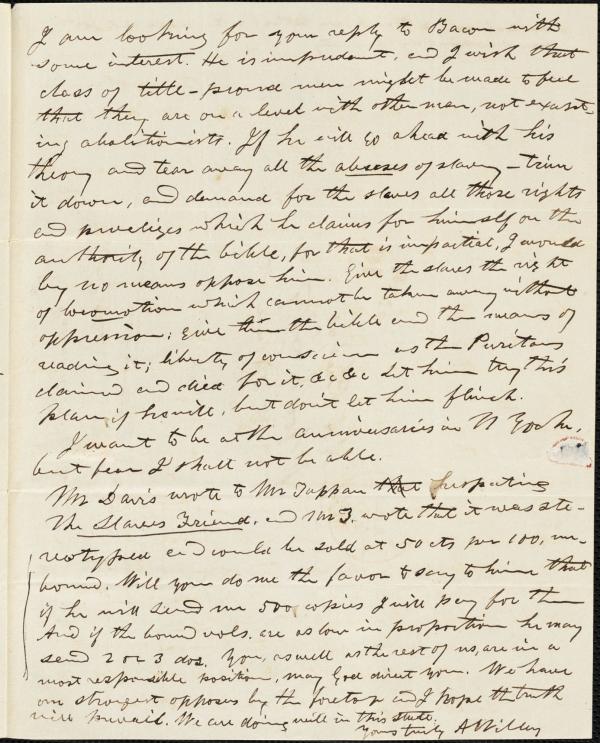 I am looking for your reply to Bacon with
some interest. He is imprudent, and I wish that
class of title-proud men might be made to feel
that they are on a level with other men, not except-
ing abolitionists. If he will go ahead with his
theory and tear away all the abuses of slavery – trim
it down, and demand for the slaves all those rights
and privileges which he claims for himself on the
authority of the bible, for that is impartial, I would
by no means oppose him. Give the slaves the right
of locomotion which cannot be taken away without
oppression; give them the bible and the means of
reading it; liberty of conscience as the Puritans
claimed and died for it, &c &c Let him try this
plan if he will, but don't let him flinch.
I want to be at the anniversaries in N York,
but fear I shall not be able.
Mr Davis wrote to Mr Tappan that respecting
the Slaves Friend, and Mr T. wrote that it was ste-
reotyped and would be sold at 50 cts per 100, un-
bound. Will you do me the favor to say to him that
if he will send me 500 copies I will pay for them
And if the bound vols. are as low in proportion he may
send 2 or 3 doz. You, as well as the rest of us, are in a
most responsible position, may God direct you. We have
our strongest opposes by the foretop and I hope the truth
will prevail. We are doing well in this state.
Yours truly A Willey